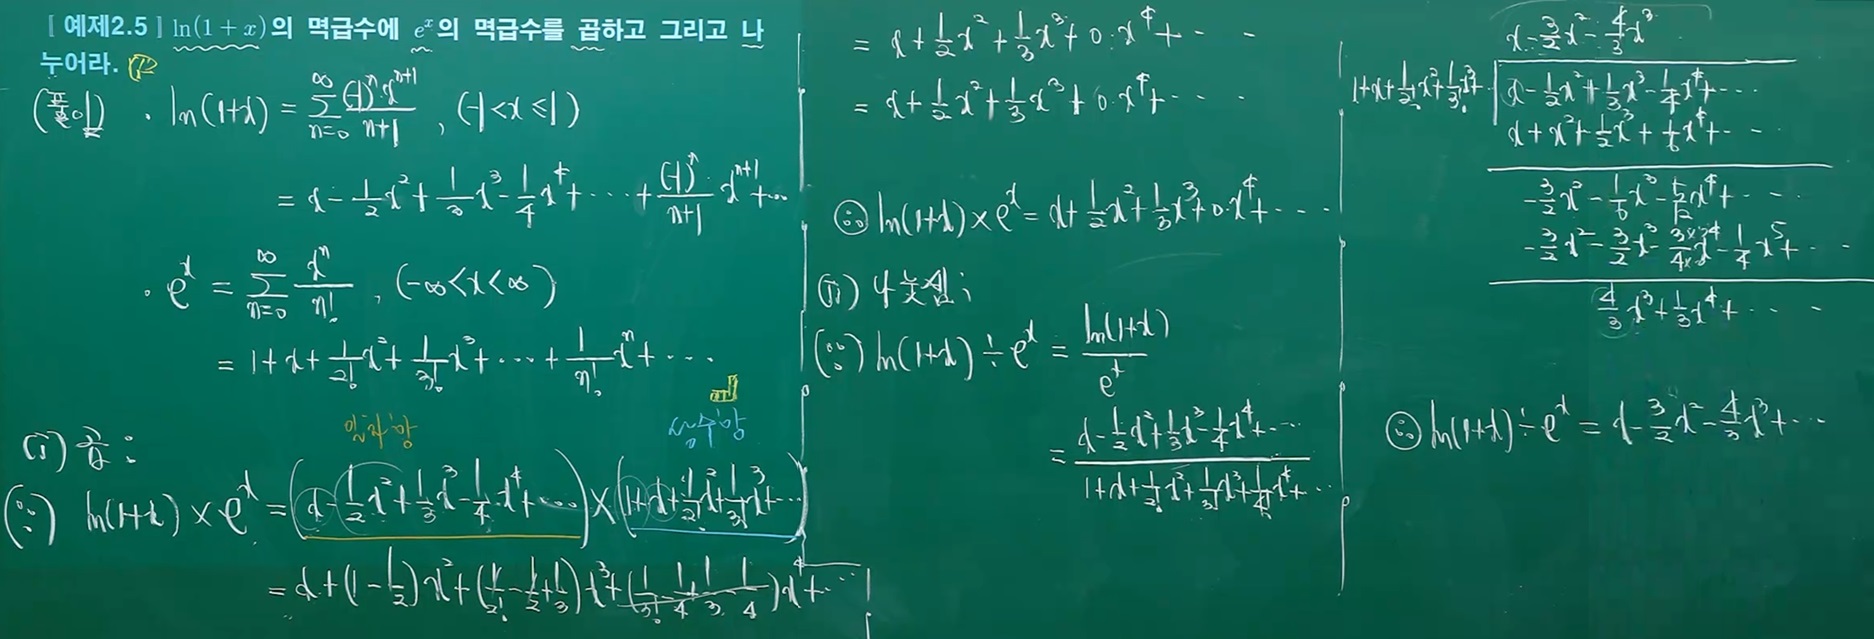 [예제2.5] ln(1+x)의 멱급수에 e^x의 멱급수를 곱하고 그리고 나
누어라.
(풀이) · ln(1+x) = ∑_{n=0}^{∞} (-1)^n x^{n+1} / (n+1), (-1<x≤1)
= x - 1/2 x^2 + 1/3 x^3 - 1/4 x^4 + ··· + (-1)^n/(n+1) x^{n+1} + ···
· e^x = ∑_{n=0}^{∞} x^n/n!, (-∞<x<∞)
= 1 + x + 1/2! x^2 + 1/3! x^3 + ··· + 1/n! x^n + ···
일차항 상수항
(i) 곱 :
(∵) ln(1+x) × e^x = (x - 1/2 x^2 + 1/3 x^3 - 1/4 x^4 + ···) × (1 + x + 1/2! x^2 + 1/3! x^3 + ···)
= x + (1 - 1/2) x^2 + (1/2! - 1/2 + 1/3) x^3 + (1/3! - 1/4 + 1/3 - 1/4) x^4 + ···
= x + 1/2 x^2 + 1/3 x^3 + 0·x^4 + ···
= x + 1/2 x^2 + 1/3 x^3 + 0·x^4 + ···
∴ ln(1+x) × e^x = x + 1/2 x^2 + 1/3 x^3 + 0·x^4 + ···
(ii) 나눗셈 ;
(∵) ln(1+x) ÷ e^x = ln(1+x) / e^x
= (x - 1/2 x^2 + 1/3 x^3 - 1/4 x^4 + ···) / (1 + x + 1/2! x^2 + 1/3! x^3 + 1/4! x^4 + ···)
x - 3/2 x^2 - 4/3 x^3
1 + x + 1/2! x^2 + 1/3! x^3 + x - 1/2 x^2 + 1/3 x^3 - 1/4 x^4 + ···
x + x^2 + 1/2 x^3 + 1/6 x^4 + ···
-3/2 x^2 - 1/6 x^3 - 5/12 x^4 + ···
-3/2 x^2 - 3/2 x^3 - 3/4 x^4 - 1/4 x^5 + ···
4/3 x^3 + 1/3 x^4 + ···
∴ ln(1+x) ÷ e^x = x - 3/2 x^2 - 4/3 x^3 + ···